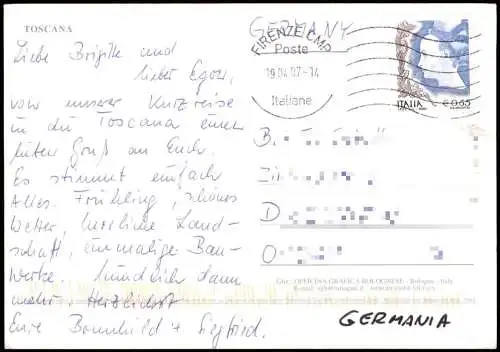 TOSCANA
Liebe Brigitte und
lieber Egon,
von unserer Kurzreise
in die Toscana einen
guten Gruß an Euch.
Es stimmt einfach
Alles. Frühling, schönes
Wetter, herrliche Land-
schaft, einmalige Bau-
werke. Mündlich dann
mehr. Herzlichst
Eure Brunhild + Siegfried.
GERMANY
FIRENZE CMP
Poste
19.04.07-14
Italiane
ITALIA € 0,65
B.
Zi
D
O
OFFICINA GRAFICA BOLOGNESE - Bologna - Italy
GERMANIA